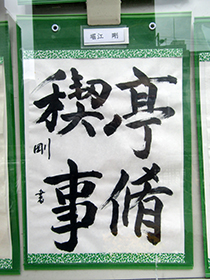 堀江 剛
亭脩
稧事
剛書